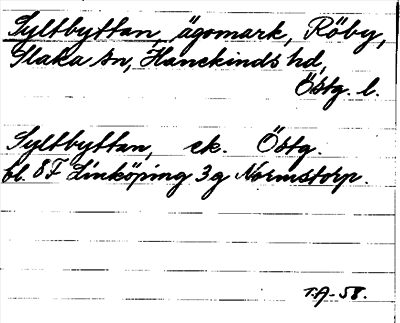 Syltbyttan, ägomark, Röby,
Slaka sn, Hanekinds hd,
Östg. l.
Syltbyttan, ek. Östg.
bl. 8F Linköping 3g Normstorp.
T.A-58.